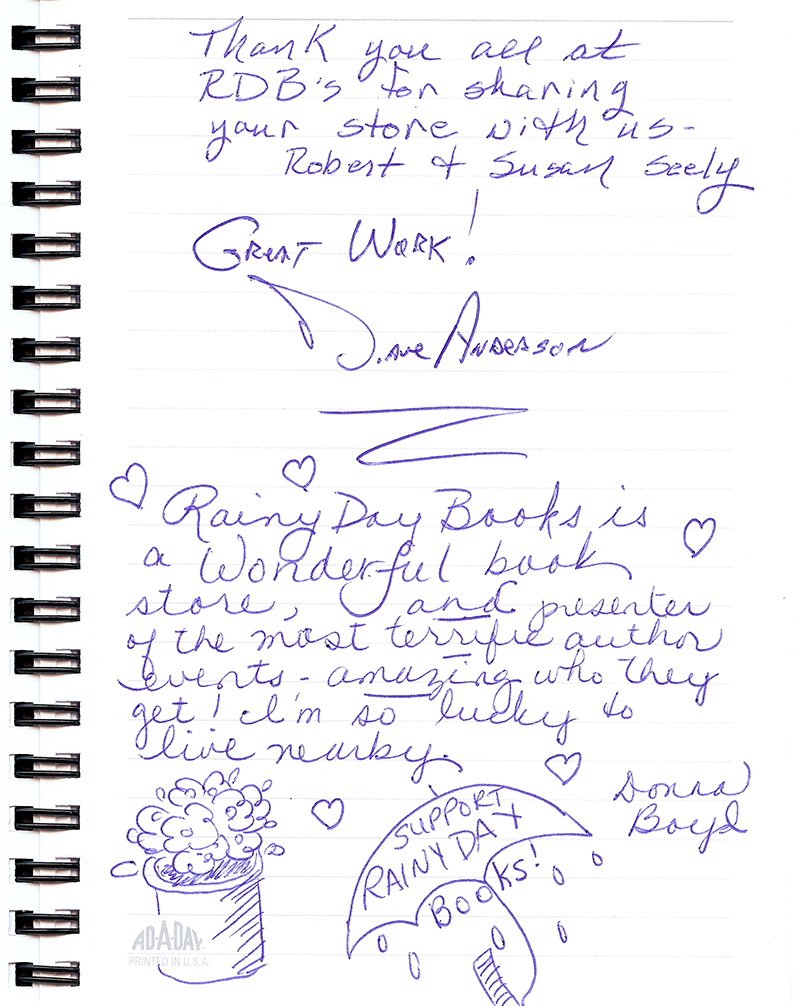 Thank you all at
RDB's for sharing
your store with us-
Robert & Susan Seely
Great Work!
Dave Anderson
Rainy Day Books is
a Wonderful book
store, and presenter
of the most terrific author
events - amazing who they
get! I'm so lucky to
live nearby.
Donna
Boyd
SUPPORT
RAINY DAY
BOOKS!
AD-A-DAY®
PRINTED IN U.S.A.